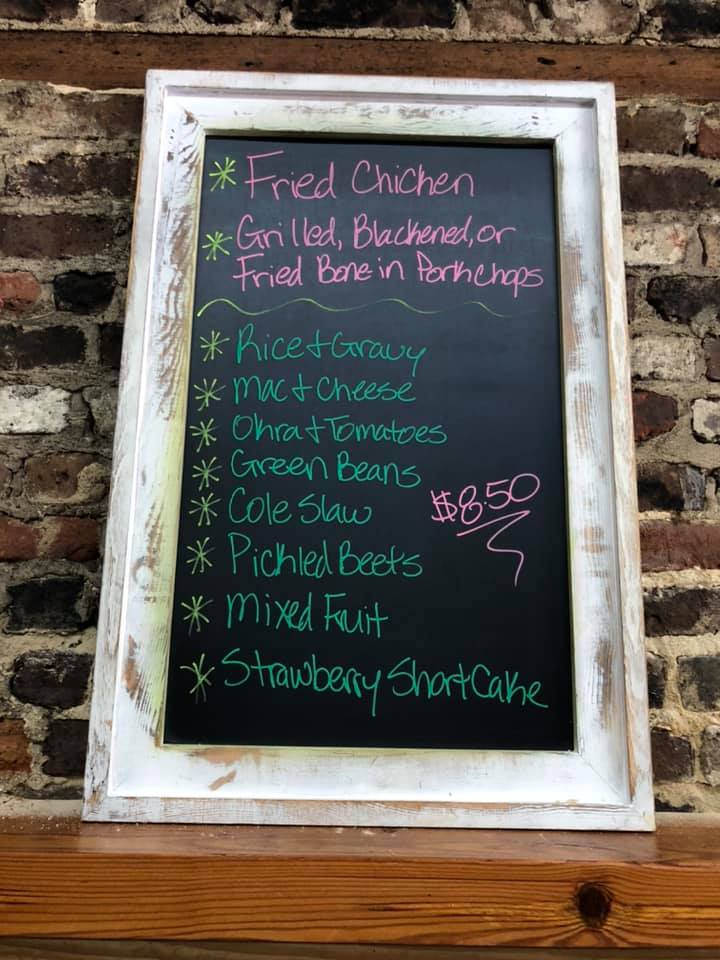 * Fried Chicken
* Grilled, Blackened, or
Fried Bone-in Porkchops
* Rice + Gravy
* Mac + Cheese
* Okra + Tomatoes
* Green Beans
* Cole Slaw
$8.50
* Pickled Beets
* Mixed Fruit
* Strawberry Short Cake